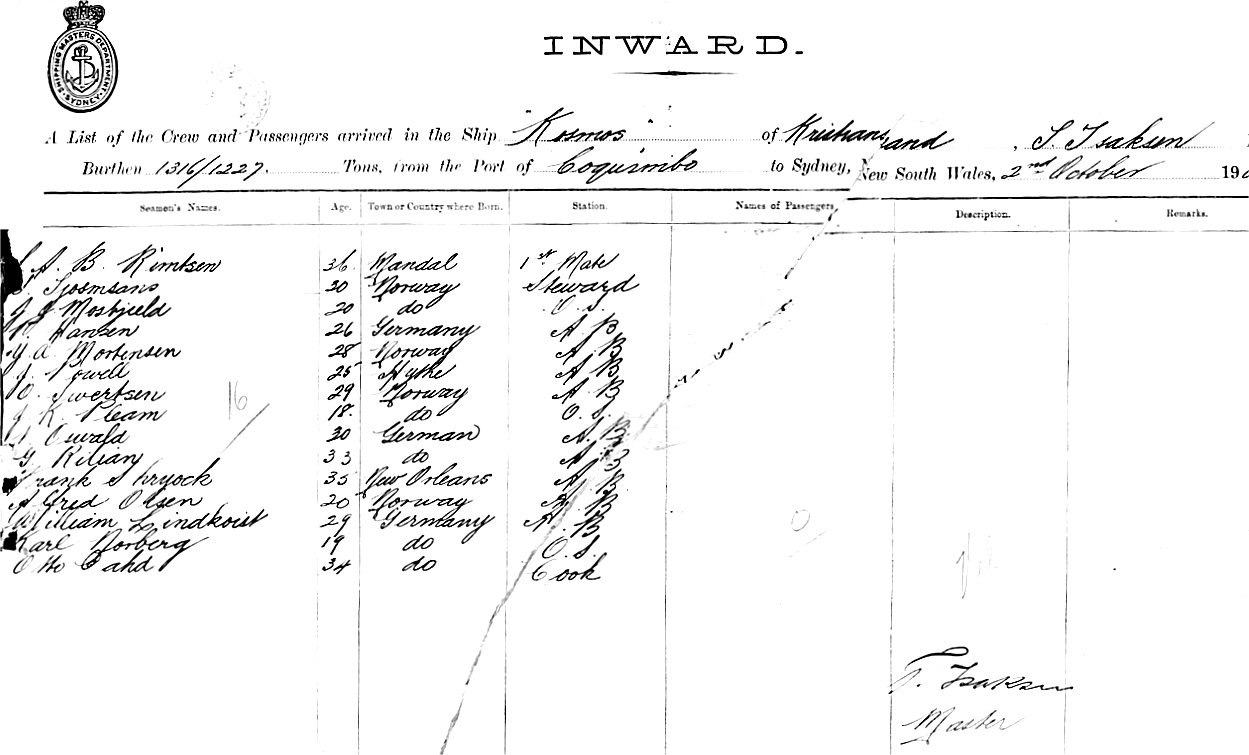 SHIPPING MASTERS DEPARTMENT. SYDNEY
INWARD.
A List of the Crew and Passengers arrived in the Ship "Kosmos" of Kristiansand, T. Isaksen
Burthen 1316/1227. Tons, from the Port of Coquimbo to Sydney, New South Wales, 2nd October 19
Seamen's Names. Age. Town or Country where Born. Station. Names of Passengers. Description. Remarks.
A. B. Rimtsen 36 Mandal 1st Mate
Tjoomsans 20 Norway Steward
Mosbjeld 20 do O. S.
Hansen 26 Germany A. B
Mortensen 28 Norway A. B
J. Powell 25 Hythe A. B
O. Swertsen 29 Norway A B
J K. Pleam 18. do O. S.
Oswald 30 German A. B
G Kilian 33 do A. B
Frank Shryock 35 New Orleans A. B
Alfred Olsen 20 Norway A. B
William Lindkoist 29 Germany A. B
Karl Norberg 19 do O. S.
Otto Dahd 34 do Cook
16
T. Isaksen
Master